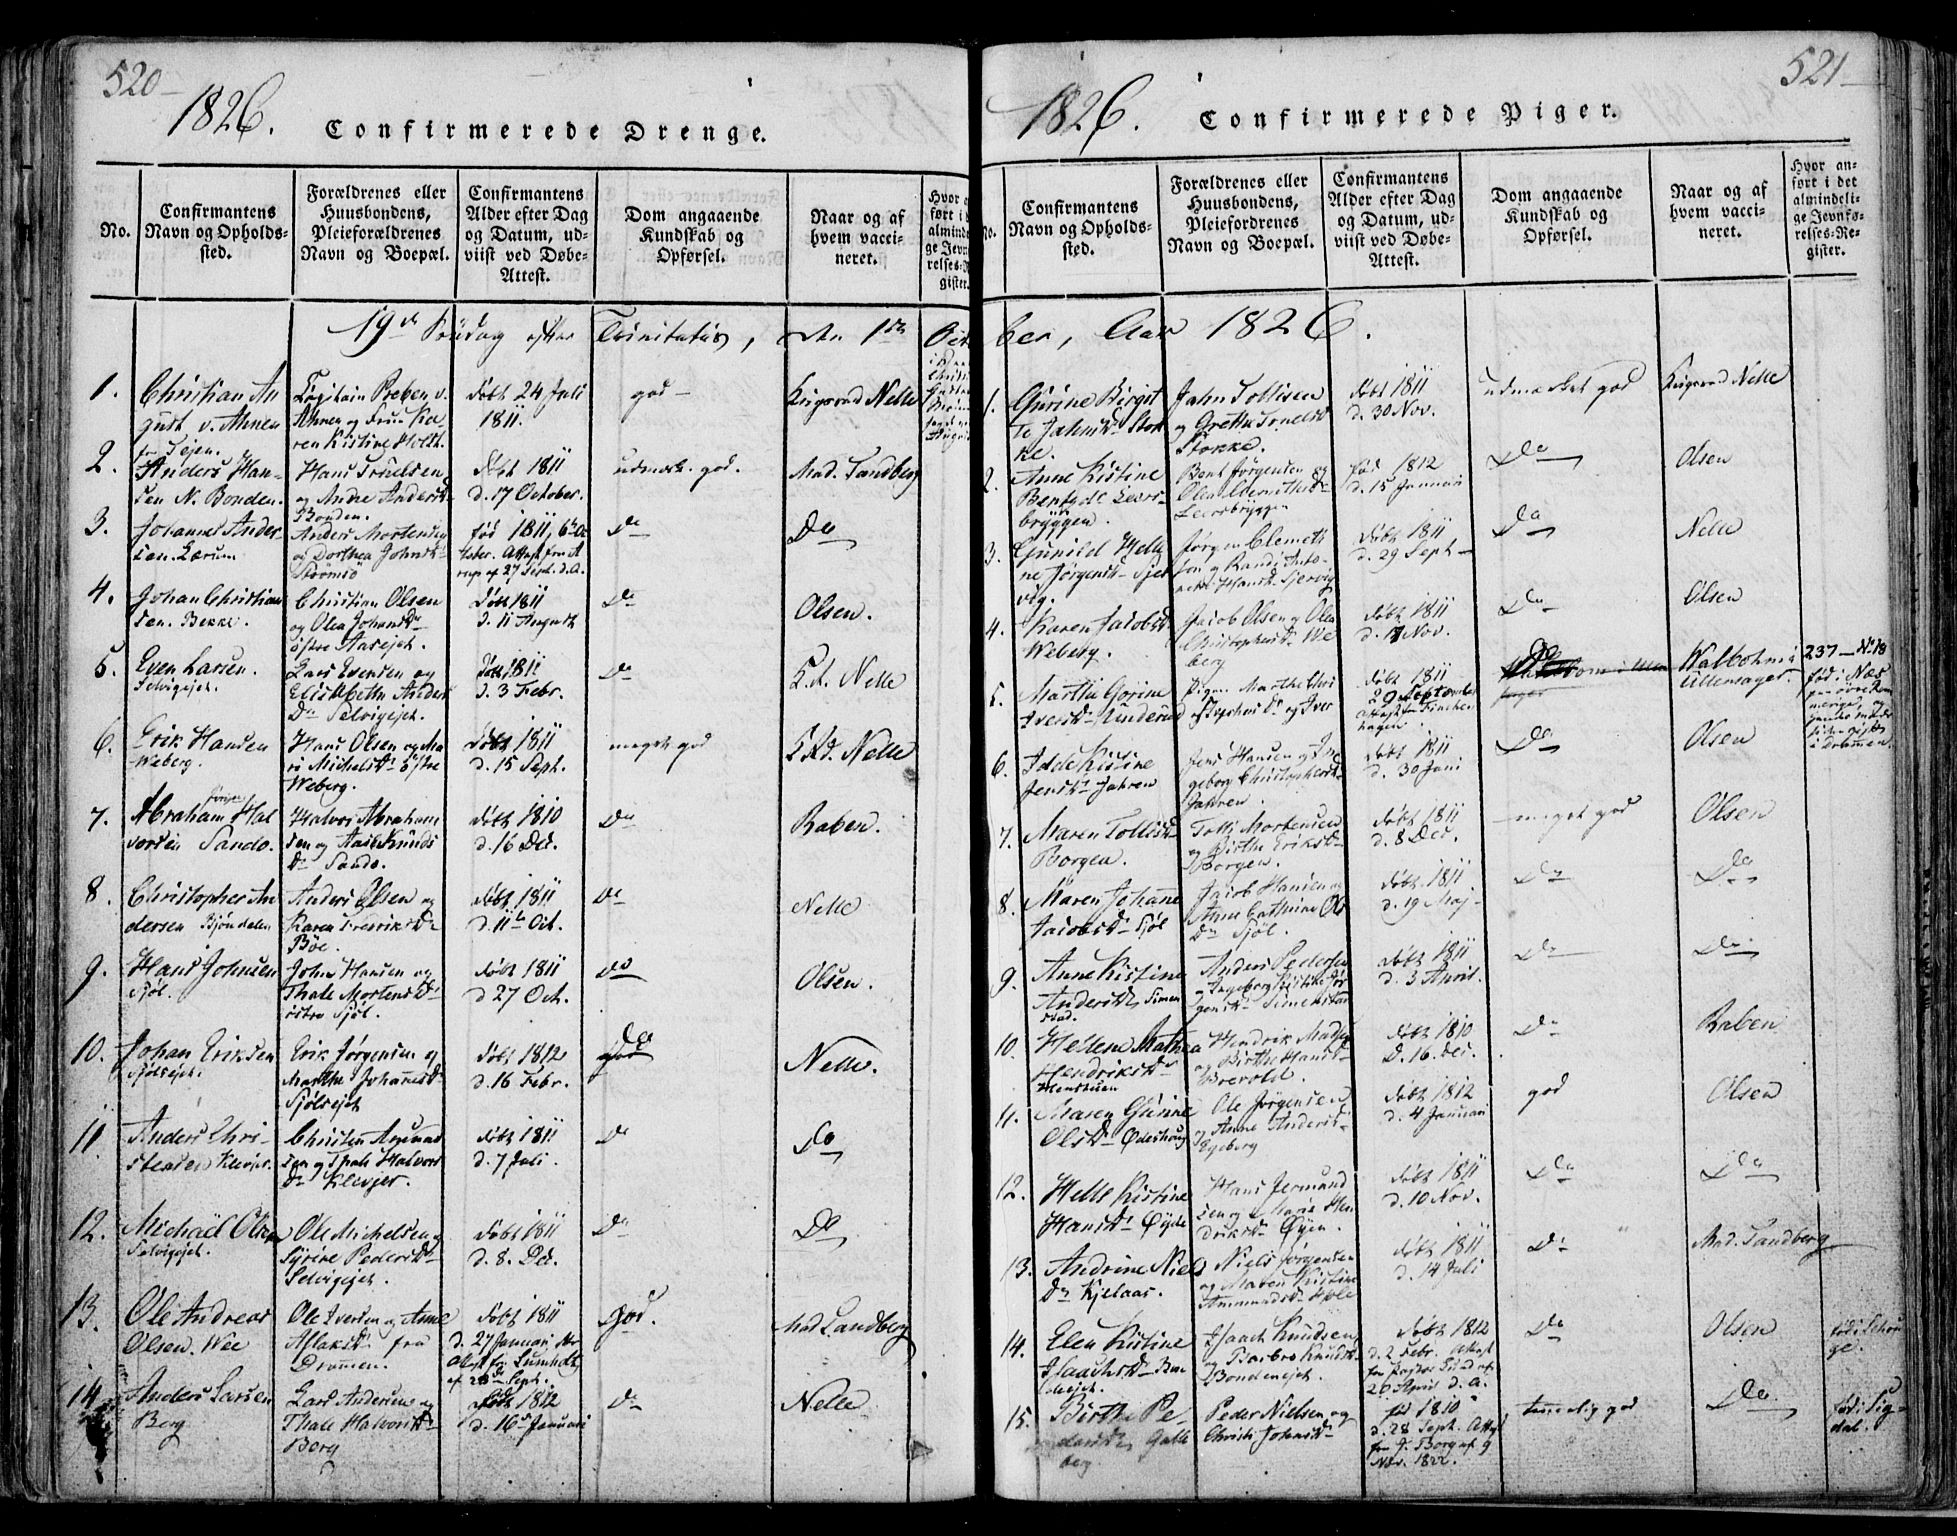 520
1826. Confirmerede Drenge.
No.
Confirmantens
Navn og Opholds-
sted.
Forældrenes eller
Huusbondens,
Pleieforældrenes
Navn og Boepæl.
Confirmantens
Alder efter Dag
og Datum, ud-
viist ved Døbe-
Attest.
Dom angaaende
Kundskab og
Opførsel.
Naar og af
hvem vacci-
neret.
19de Søndag efter Trinitatis, den 1ste Octo
1.
Christian Au
gust v. Ahnen
Capitain Preben v.
Ahnen og Frue Ka
ren Kistine Holth.
døbt 24 Juli
1811.
god
Krigsraad Nelle
2.
Anders Han-
sen N. Bonden.
Hans Truelsen
og Andre Andersd
Bonden.
døbt 1811
d. 17 October.
udmærk. god.
Mad. Sandberg
3.
Johannes Ander
sen. Lærum
Anders Mortensen
og Dorthea Johnsd
Strømsø
fød 1811, 6te Oc
tober. Attest fra A
rup af 27 Sept. d. A.
Do
Do
4.
Johan Christian
sen. Bekke.
Christian Olsen
og Olea Johansdr
østre Aasejet.
døbt 1811
d. 11 Augusti
Do
Olsen.
5.
Even Larsen.
Selvigejet.
Lars Evensen og
Elisabeth Anders
Dr Selvigejet.
døbt 1811
d. 3 Febr.
Do
K.d. Nelle
6.
Erik Hansen
Weberg.
Hans Olsen og Ma
ri Michelsdr østre
Weberg.
døbt 1811
d. 15 Sept.
meget god
K.Rd. Nelle
7.
Abraham Hal
vorsen Sando.
Halvor Abraham
sen og Aase Knuds
Dr Sando.
døbt 1810
d. 16 Dec.
Do
Raben.
8.
Christopher An
dersen Bjøndalen
Anders Olsen og
Karen Fredriksdr
Böe.
døbt 1811
d. 11te Oct.
Do
Nelle
9.
Hans Johnsen
Sjøl.
John Hansen og
Thale Mortensdr
østre Sjøl.
døbt 1811
d 27 Oct.
Do
Olsen.
10.
Johan Eriksen
Sjølsejet.
Erik Jørgensen og
Marthe Johannesdr
Sjølsejet
døbt 1812
d. 16 Febr.
Do
Nelle.
11
Anders Chri-
stensen Klevjer.
Christen Amund
sen og Thale Halvors
Dr Klevjer.
døbt 1811
d. 7 Juli.
Do
Do
12.
Michael Olsen
Selvigejet.
Ole Michelsen og
Syrine Pedersdr
Selvigejet.
døbt 1811
d. 8. Dec.
Do
Do
13.
Ole Andreas
Olsen. Wee
Ole Iversen og Anne
Aslaksd fra
Drammen.
døbt 1811
d. 27 Januari
Attest fr. Lumholtz
af 28de Sept.
God.
Mad Sandberg
14.
Anders Larsen
Berg
Lars Andersen og
Thale Halvorsdr
Berg
døbt 1812
d. 16de Januari
Do
Nelle
521
1826. Confirmerede Piger.
Confirmantens
Navn og Opholds-
sted.
Forældrenes eller
Huusbondens,
Pleiefordrenes
Navn og Boepæl.
Confirmantens
Alder efter Dag
og Datum, ud-
viist ved Døbe-
Attest.
Dom angaaende
Kundskab og
Opførsel.
Naar og af
hvem vacci-
neret.
Hvor an-
ført i det
almindeli-
ge Jevnfø-
relses-Re-
gister.
ber, Aar 1826.
1.
Gurine Birgit
te Jahnsdr Stok
ke.
Jahn Tollisen
og Grethe Truelsd
Stokke.
døbt 1811
d. 30 Nov.
udmærket god
Krigsraad Nelle
2.
Anne Kistine
Bentsdr Leers-
bryggen.
Bent Jørgensen og
Leersbryggen
fød 1812
d. 15 Januari
Do
Olsen
3.
Gunild Hele
ne Jørgensdr Sjer
vig.
Jørgen Clemet
sen og Randi Anto-
Hansd. Sjervig
døbt 1811
d. 29 Sept
Do
Nelle
4.
Karen Jacobsd
Weberg.
Jacob Olsen og Olea
Christophersdr We
berg
døbt 1811
d. 17 Nov.
Do
Olsen
5.
Marthe Gorine
Iversdr
Pigen Marthe Chri
stophersdr og Iver
døbt 1811
29 September
Do
Ullensager.
237 — No 18
fød i Næs
i Drammen.
6.
Idde Kistine
Jensdr Jahren
Jens Hansen og In
geborg Christophersdr
Jahren.
døbt 1811
d. 30 Juni
Do
Olsen
7.
Maren Tollisdr
Borgen.
Tolli Mortensen
og Birthe Eriksdr
Borgen.
døbt 1811
d. 8 Dec.
meget god
Olsen
8.
Maren Johanne
Jacobsdr Sjøl
Jacob Hansen og
Anne Cathrine Ols
Dr Sjøl.
døbt 1811
d. 19 Maj
Do
Do
9.
Anne Kistine
Andersdr Simen
stad.
Anders Pedersen
og Ingeborg Kistine Jør
gensdr Simenstad
døbt 1811
d. 3 April.
Do
Do
10.
Hellene Mathea
Hendriksdr
Hendrik Madsen
og Birthe Hansdr
døbt 1810
d. 16. Dec.
Do
Raben
11.
Maren Gurine
Olsdr Ødeshoug
Ole Jørgensen
Anne Andersdr
Egeberg
døbt 1812
d. 4 Januari
god
Olsen
12.
Helle Kistine
Hansdr Øyde
Hans Jermund
sen og Marie Hen
driksdr Øyen.
døbt 1811
d. 10 Nov.
Do
Do
13.
Andrine Niels
Dr Kjelaas.
Niels Jørgensen
og Maren Kistine
Ammundsdr Hole
døbt 1811
d. 14 Juli
Do
Mad. Sandberg
14.
Elen Kistine
Isaachsdr Bon
denejet.
Isaach Knudsen
og Barbro Knudsdr
Bondenejet.
døbt 1812
d. 2 Febr. Attest
26 April d. A.
Do
Olsen
fød i Schou
ge.
15.
Birthe Pe-
dersdr Galle
berg
Peder Nielsen og
Christi Johnsdr
fød 1810
d. 28 Sept. Attest
fra J. Borg af 9
Nov. 1822.
temmelig god
Do
fød i Sig-
dal.